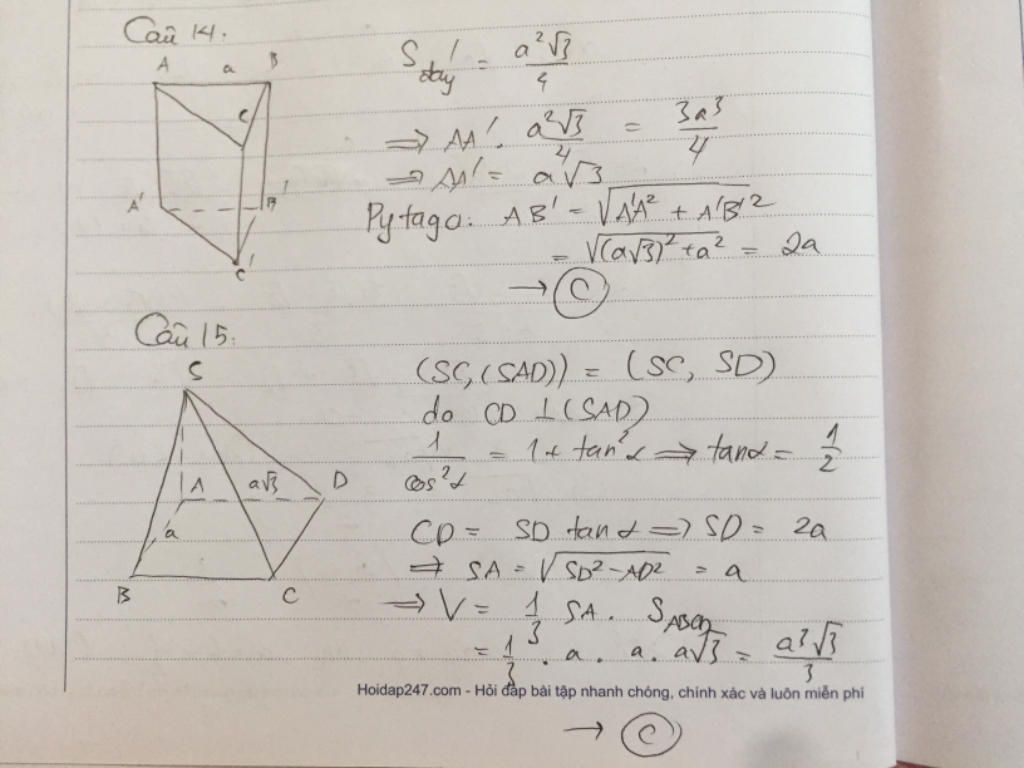 Câu 14.
A a B
C
A' B'
C'
S đáy = a²√3/4
⇒ AA'. a²√3/4 = 3a³/4
⇒ AA' = a√3
Pytago: AB' = √(A'A² + A'B'²)
= √((a√3)² + a²) = 2a
→ C
Câu 15.
S
A a√3 D
a
B C
(SC, (SAD)) = (SC, SD)
do CD ⊥ (SAD)
1/cos²α = 1 + tan²α ⇒ tanα = 1/2
CD = SD tanα ⇒ SD = 2a
⇒ SA = √(SD² - AD²) = a
⇒ V = 1/3 SA. S ABCD
= 1/3 . a. a. a√3 = a³√3/3
Hoidap247.com - Hỏi đáp bài tập nhanh chóng, chính xác và luôn miễn phí
→ C